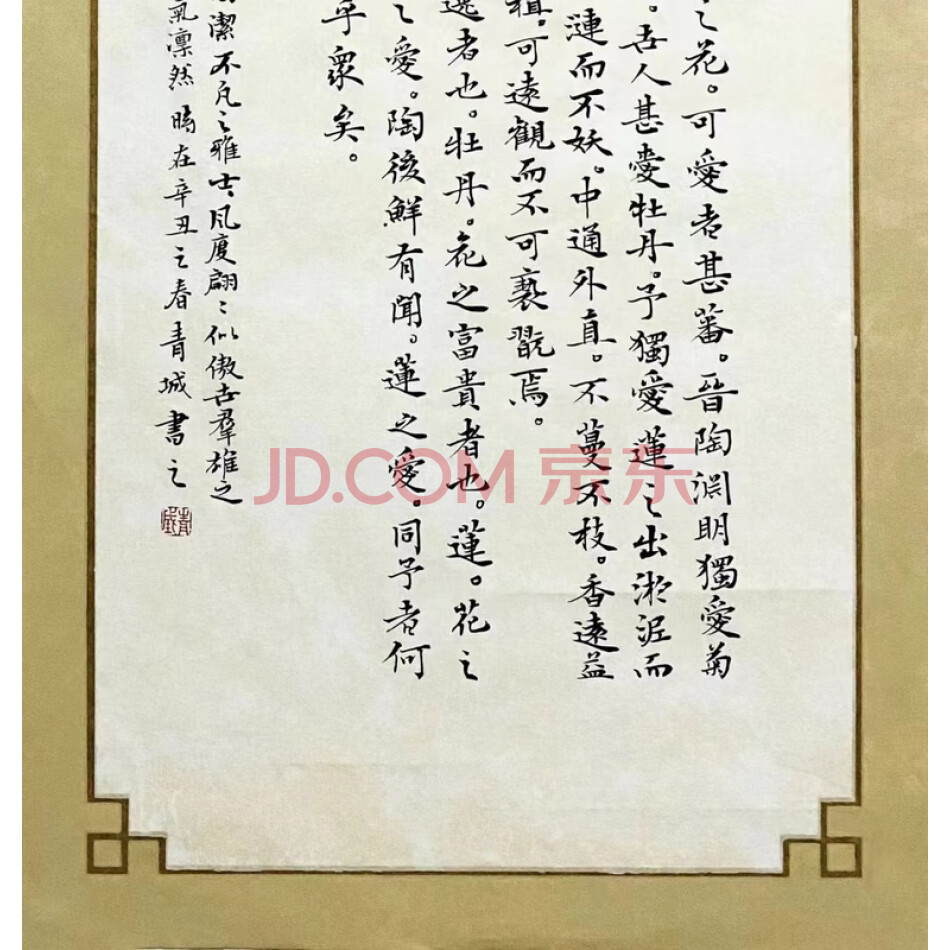 之花。可愛者甚蕃。晉陶渊明獨愛菊
。世人甚愛牡丹。予獨愛蓮之出淤泥而
漣而不妖。中通外直。不蔓不枝。香遠益
植。可遠觀而不可褻翫焉。
逸者也。牡丹。花之富貴者也。蓮。花之
之愛。陶後鮮有聞。蓮之愛。同予者何
乎衆矣。
潔不凡之雅士風度翩〻似傲世羣雄之
氣凛然 時在辛丑之春青城書之
JD.COM 京东